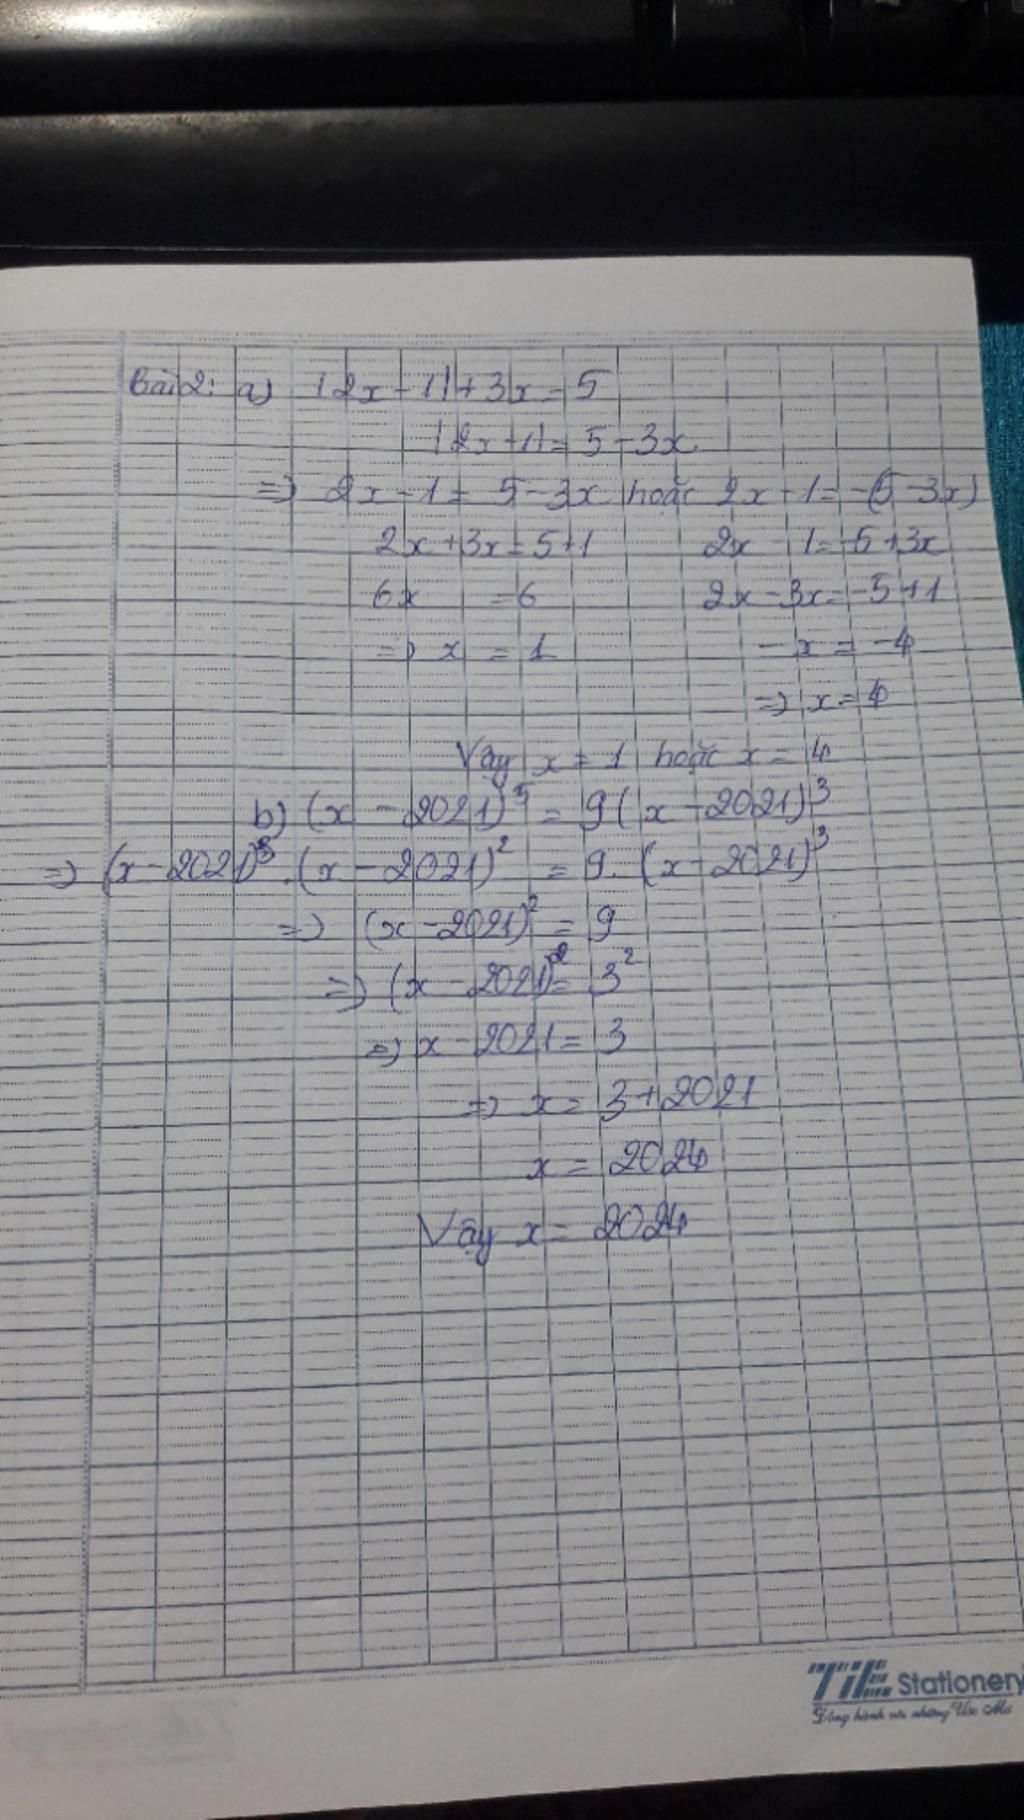 Bài 2: a) |2x - 1| + 3x = 5
|2x - 1| = 5 - 3x
=> 2x - 1 = 5 - 3x hoặc 2x - 1 = -(5 - 3x)
2x + 3x = 5 + 1 2x - 1 = -5 + 3x
6x = 6 2x - 3x = -5 + 1
=> x = 1 - x = -4
=> x = 4
Vậy x = 1 hoặc x = 4
b) (x - 2021)^5 = 9(x - 2021)^3
=> (x - 2021)^3 . (x - 2021)^2 = 9. (x - 2021)^3
=> (x - 2021)^2 = 9
=> (x - 2021)^2 = 3^2
=> x - 2021 = 3
=> x = 3 + 2021
x = 2024
Vậy x = 2024
TiE Stationery
Đồng hành với những Ước Mơ